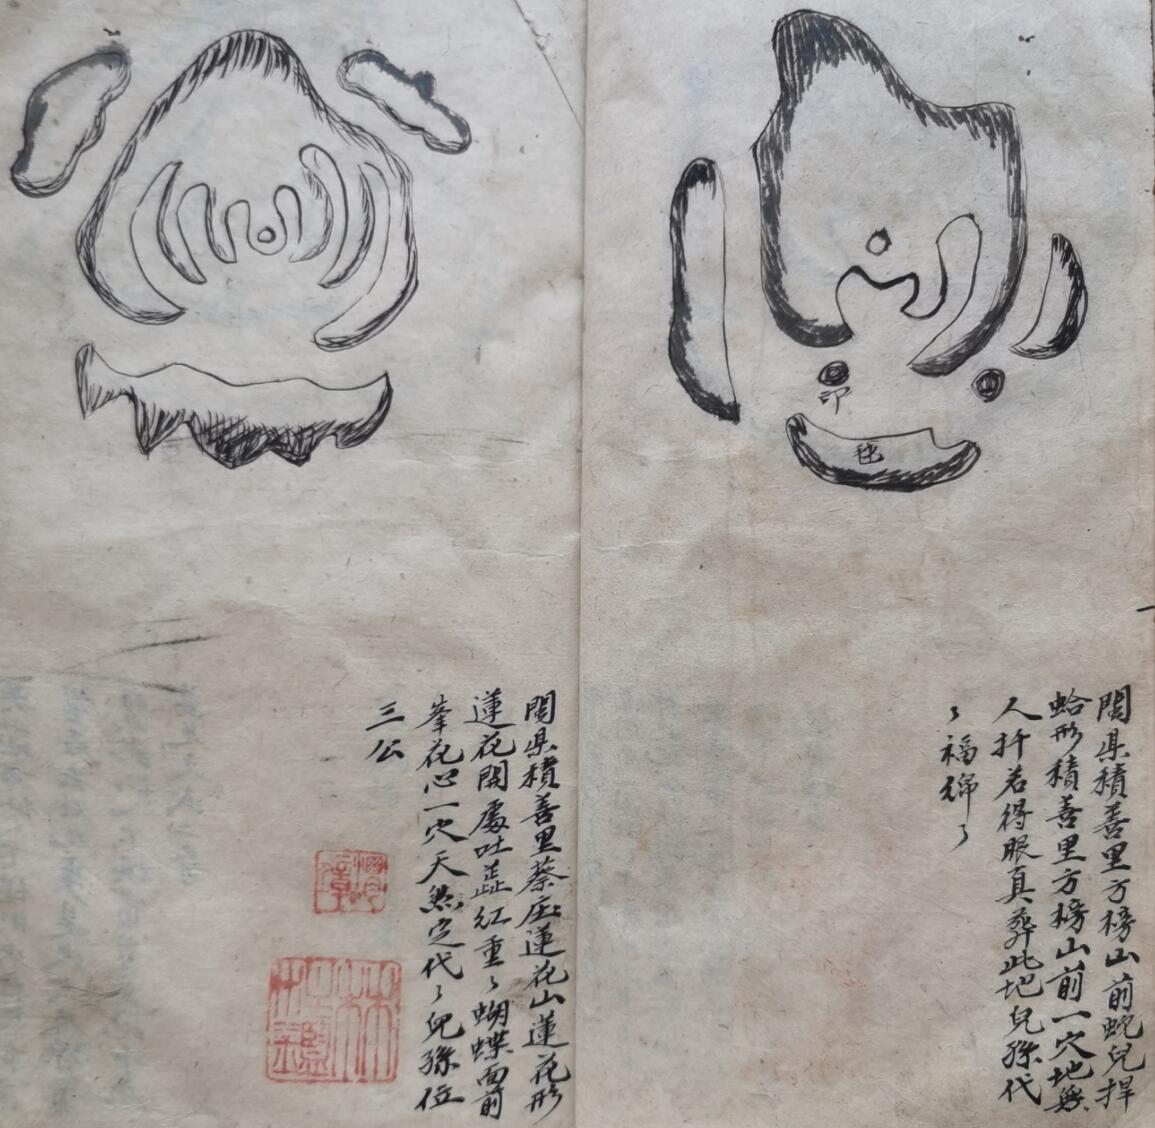 印
毬
閩县積善里方榜山前蛇兒捍
蛤形積善里方榜山前一穴地無
人扦若得眼真葬此地兒孫代
〻福綿〻
閩县積善里蔡庄蓮花山蓮花形
蓮花開處吐蕋紅重〻蝴蝶面前
峯花心一穴天然定代〻兒孫位
三公